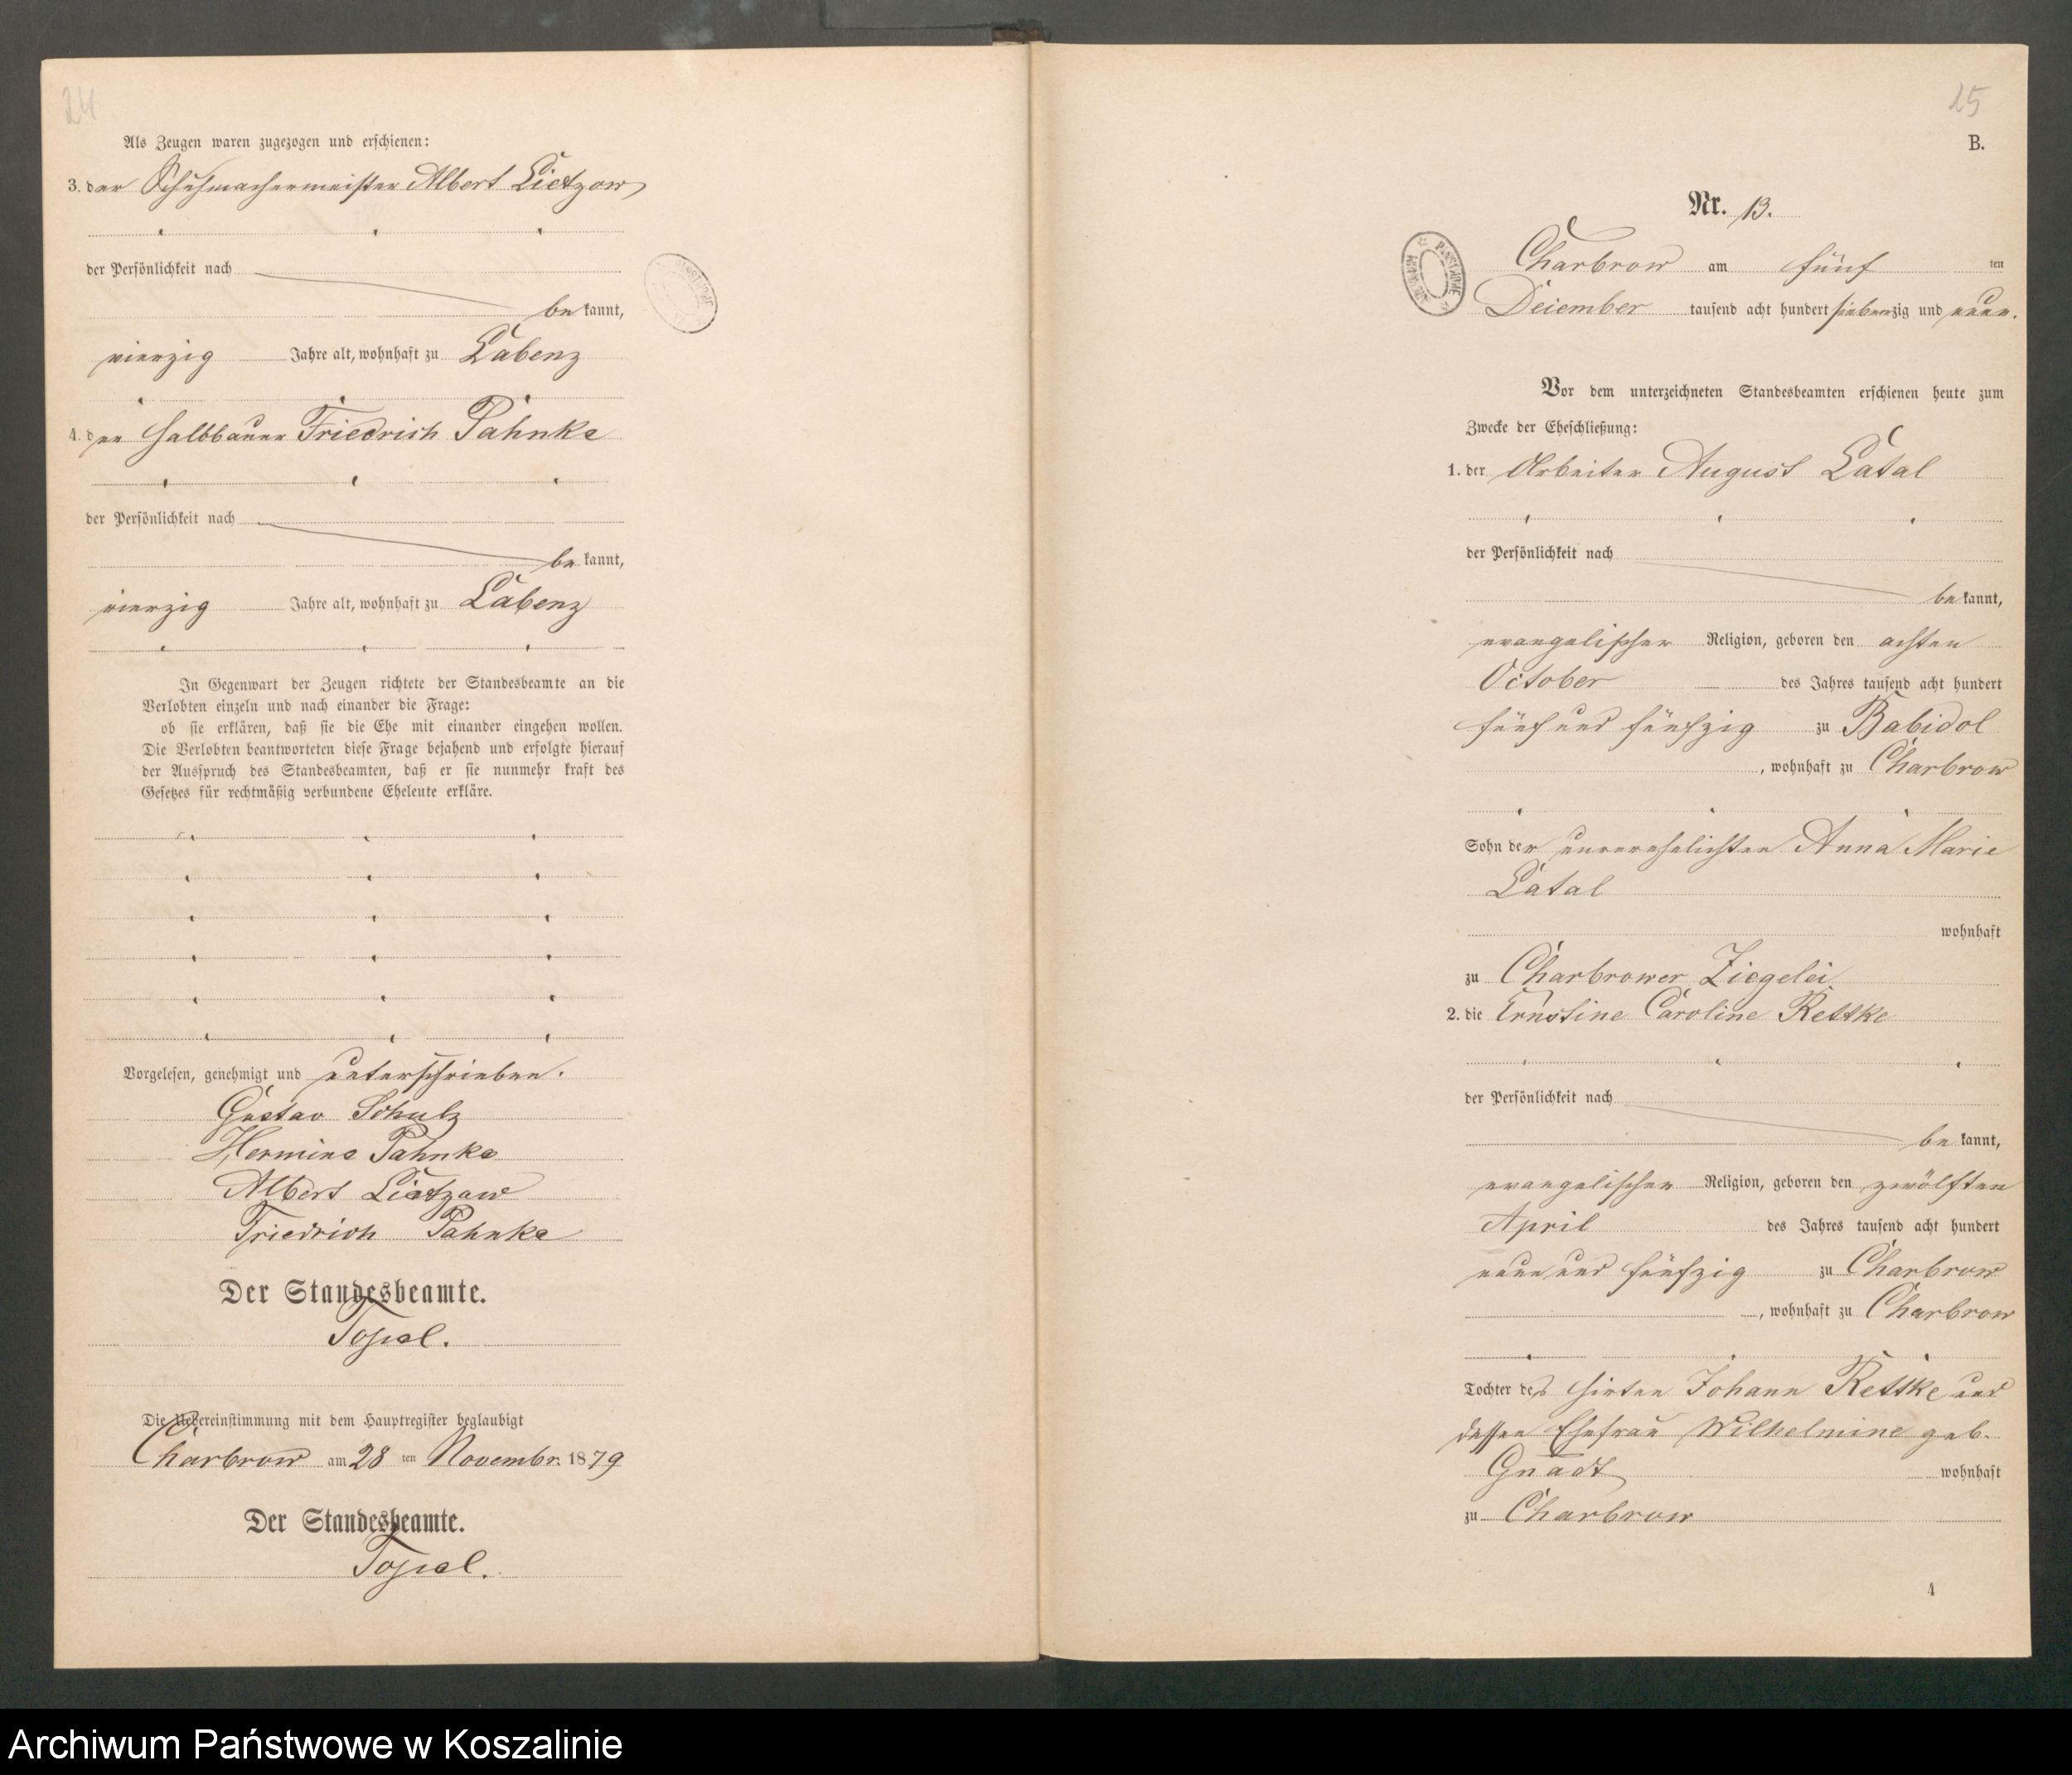 24
Als Zeugen waren zugezogen und erschienen:
3. der Schuhmachermeister Albert Lietzow
der Persönlichkeit nach
be kannt,
vierzig Jahre alt, wohnhaft zu Labenz
4. der Halbbauer Friedrich Pahnke
der Persönlichkeit nach
be kannt,
vierzig Jahre alt, wohnhaft zu Labenz
In Gegenwart der Zeugen richtete der Standesbeamte an die
Verlobten einzeln und nach einander die Frage:
ob sie erklären, daß sie die Ehe mit einander eingehen wollen.
Die Verlobten beantworteten diese Frage bejahend und erfolgte hierauf
der Ausspruch des Standesbeamten, daß er sie nunmehr kraft des
Gesetzes für rechtmäßig verbundene Eheleute erkläre.
Vorgelesen, genehmigt und unterschrieben.
Gustav Schulz
Hermine Pahnke
Albert Lietzow
Friedrich Pahnke
Der Standesbeamte.
Die Uebereinstimmung mit dem Hauptregister beglaubigt
Charbrow am 28 ten Novembr. 1879
Der Standesbeamte.
15
B.
Nr. 13.
Charbrow am fünf ten
Deiember tausend acht hundert siebenzig und neun.
Vor dem unterzeichneten Standesbeamten erschienen heute zum
Zwecke der Eheschließung:
1. der Arbeiter August Latal
der Persönlichkeit nach
be kannt,
evangelischer Religion, geboren den achten
October des Jahres tausend acht hundert
fünf und fünfzig zu Babidol
, wohnhaft zu Charbrow
Sohn der unverehelichten Anna Marie
Latal
wohnhaft
zu Charbrower Ziegelei
2. die Ernstine Caroline Rettke
der Persönlichkeit nach
be kannt,
evangelischer Religion, geboren den zwölften
April des Jahres tausend acht hundert
neun und fünfzig zu Charbrow
, wohnhaft zu Charbrow
Tochter des Hirten Johann Rettke und
dessen Ehefrau Wilhelmine geb.
Gnadt wohnhaft
zu Charbrow
4
Archiwum Państwowe w Koszalinie